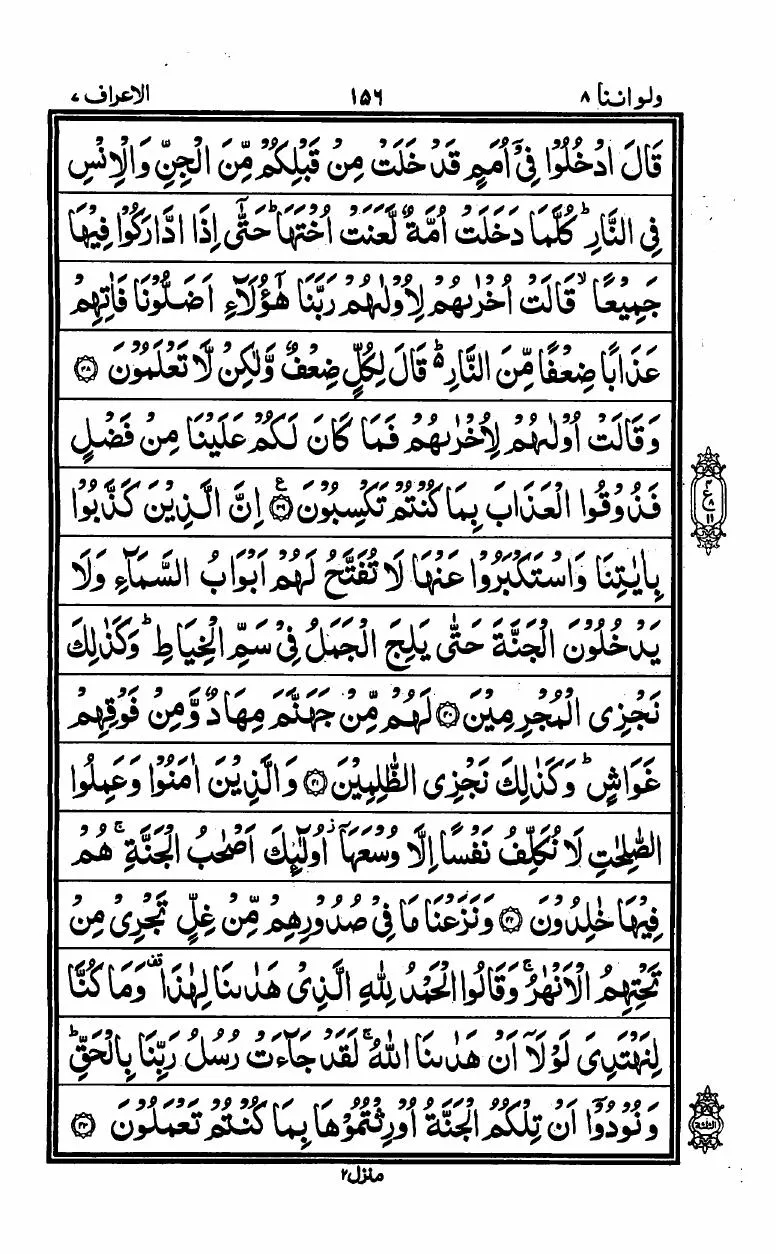 ولواننا ٨ ١٥٦ الاعراف ٧
قَالَ ادْخُلُوْا فِیْۤ اُمَمٍ قَدْ خَلَتْ مِنْ قَبْلِكُمْ مِّنَ الْجِنِّ وَالْاِنْسِ
فِی النَّارِ ؕ كُلَّمَا دَخَلَتْ اُمَّةٌ لَّعَنَتْ اُخْتَهَا ؕ حَتّٰۤی اِذَا ادَّارَكُوْا فِیْهَا
جَمِیْعًا ۙ قَالَتْ اُخْرٰىهُمْ لِاُوْلٰىهُمْ رَبَّنَا هٰۤؤُلَآءِ اَضَلُّوْنَا فَاٰتِهِمْ
عَذَابًا ضِعْفًا مِّنَ النَّارِ ؕ۬ قَالَ لِكُلٍّ ضِعْفٌ وَّلٰكِنْ لَّا تَعْلَمُوْنَ ۝۳۸
وَقَالَتْ اُوْلٰىهُمْ لِاُخْرٰىهُمْ فَمَا كَانَ لَكُمْ عَلَیْنَا مِنْ فَضْلٍ
فَذُوْقُوا الْعَذَابَ بِمَا كُنْتُمْ تَكْسِبُوْنَ ۝۳۹ ع اِنَّ الَّذِیْنَ كَذَّبُوْا
بِاٰیٰتِنَا وَاسْتَكْبَرُوْا عَنْهَا لَا تُفَتَّحُ لَهُمْ اَبْوَابُ السَّمَآءِ وَلَا
یَدْخُلُوْنَ الْجَنَّةَ حَتّٰی یَلِجَ الْجَمَلُ فِیْ سَمِّ الْخِیَاطِ ؕ وَكَذٰلِكَ
نَجْزِی الْمُجْرِمِیْنَ ۝۴۰ لَهُمْ مِّنْ جَهَنَّمَ مِهَادٌ وَّمِنْ فَوْقِهِمْ
غَوَاشٍ ؕ وَكَذٰلِكَ نَجْزِی الظّٰلِمِیْنَ ۝۴۱ وَالَّذِیْنَ اٰمَنُوْا وَعَمِلُوا
الصّٰلِحٰتِ لَا نُكَلِّفُ نَفْسًا اِلَّا وُسْعَهَاۤ ؗ اُولٰٓىِٕكَ اَصْحٰبُ الْجَنَّةِ ۚ هُمْ
فِیْهَا خٰلِدُوْنَ ۝۴۲ وَنَزَعْنَا مَا فِیْ صُدُوْرِهِمْ مِّنْ غِلٍّ تَجْرِیْ مِنْ
تَحْتِهِمُ الْاَنْهٰرُ ۚ وَقَالُوا الْحَمْدُ لِلّٰهِ الَّذِیْ هَدٰىنَا لِهٰذَا ۫ وَمَا كُنَّا
لِنَهْتَدِیَ لَوْلَاۤ اَنْ هَدٰىنَا اللّٰهُ ۚ لَقَدْ جَآءَتْ رُسُلُ رَبِّنَا بِالْحَقِّ ؕ
وَنُوْدُوْۤا اَنْ تِلْكُمُ الْجَنَّةُ اُوْرِثْتُمُوْهَا بِمَا كُنْتُمْ تَعْمَلُوْنَ ۝۴۳
منزل ٢